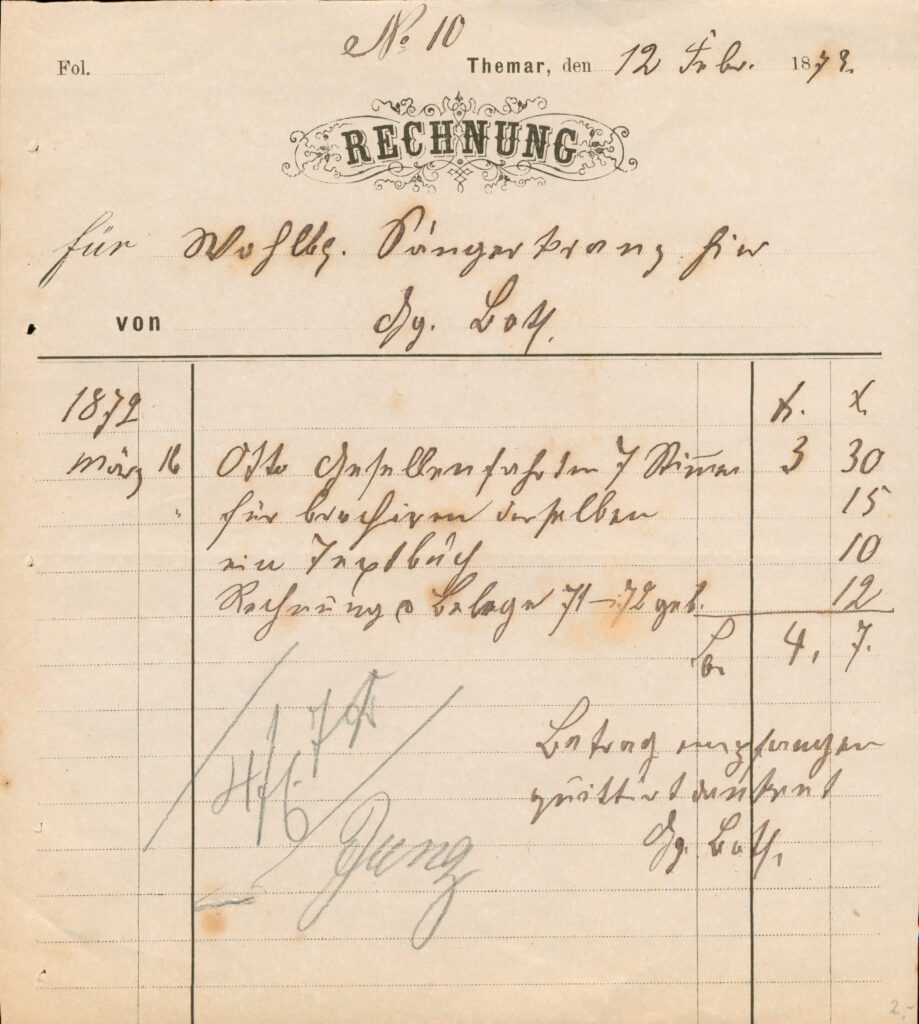 No 10
Fol. Themar, den 12 Febr. 1873.
RECHNUNG
für Wohllbg. Sängerkranz hier
von Gg. Both.
1872 f. x.
März 16 Otto Gesellenfahrten 7 Stimmen 3 30
" für brochiren derselben 15
ein Textbuch 10
Rechnung & Belege 71–72 geb. 12
4, 7.
Betrag empfangen
quittirt dankent
Gg. Both.
4 fl. 7 x
2,-